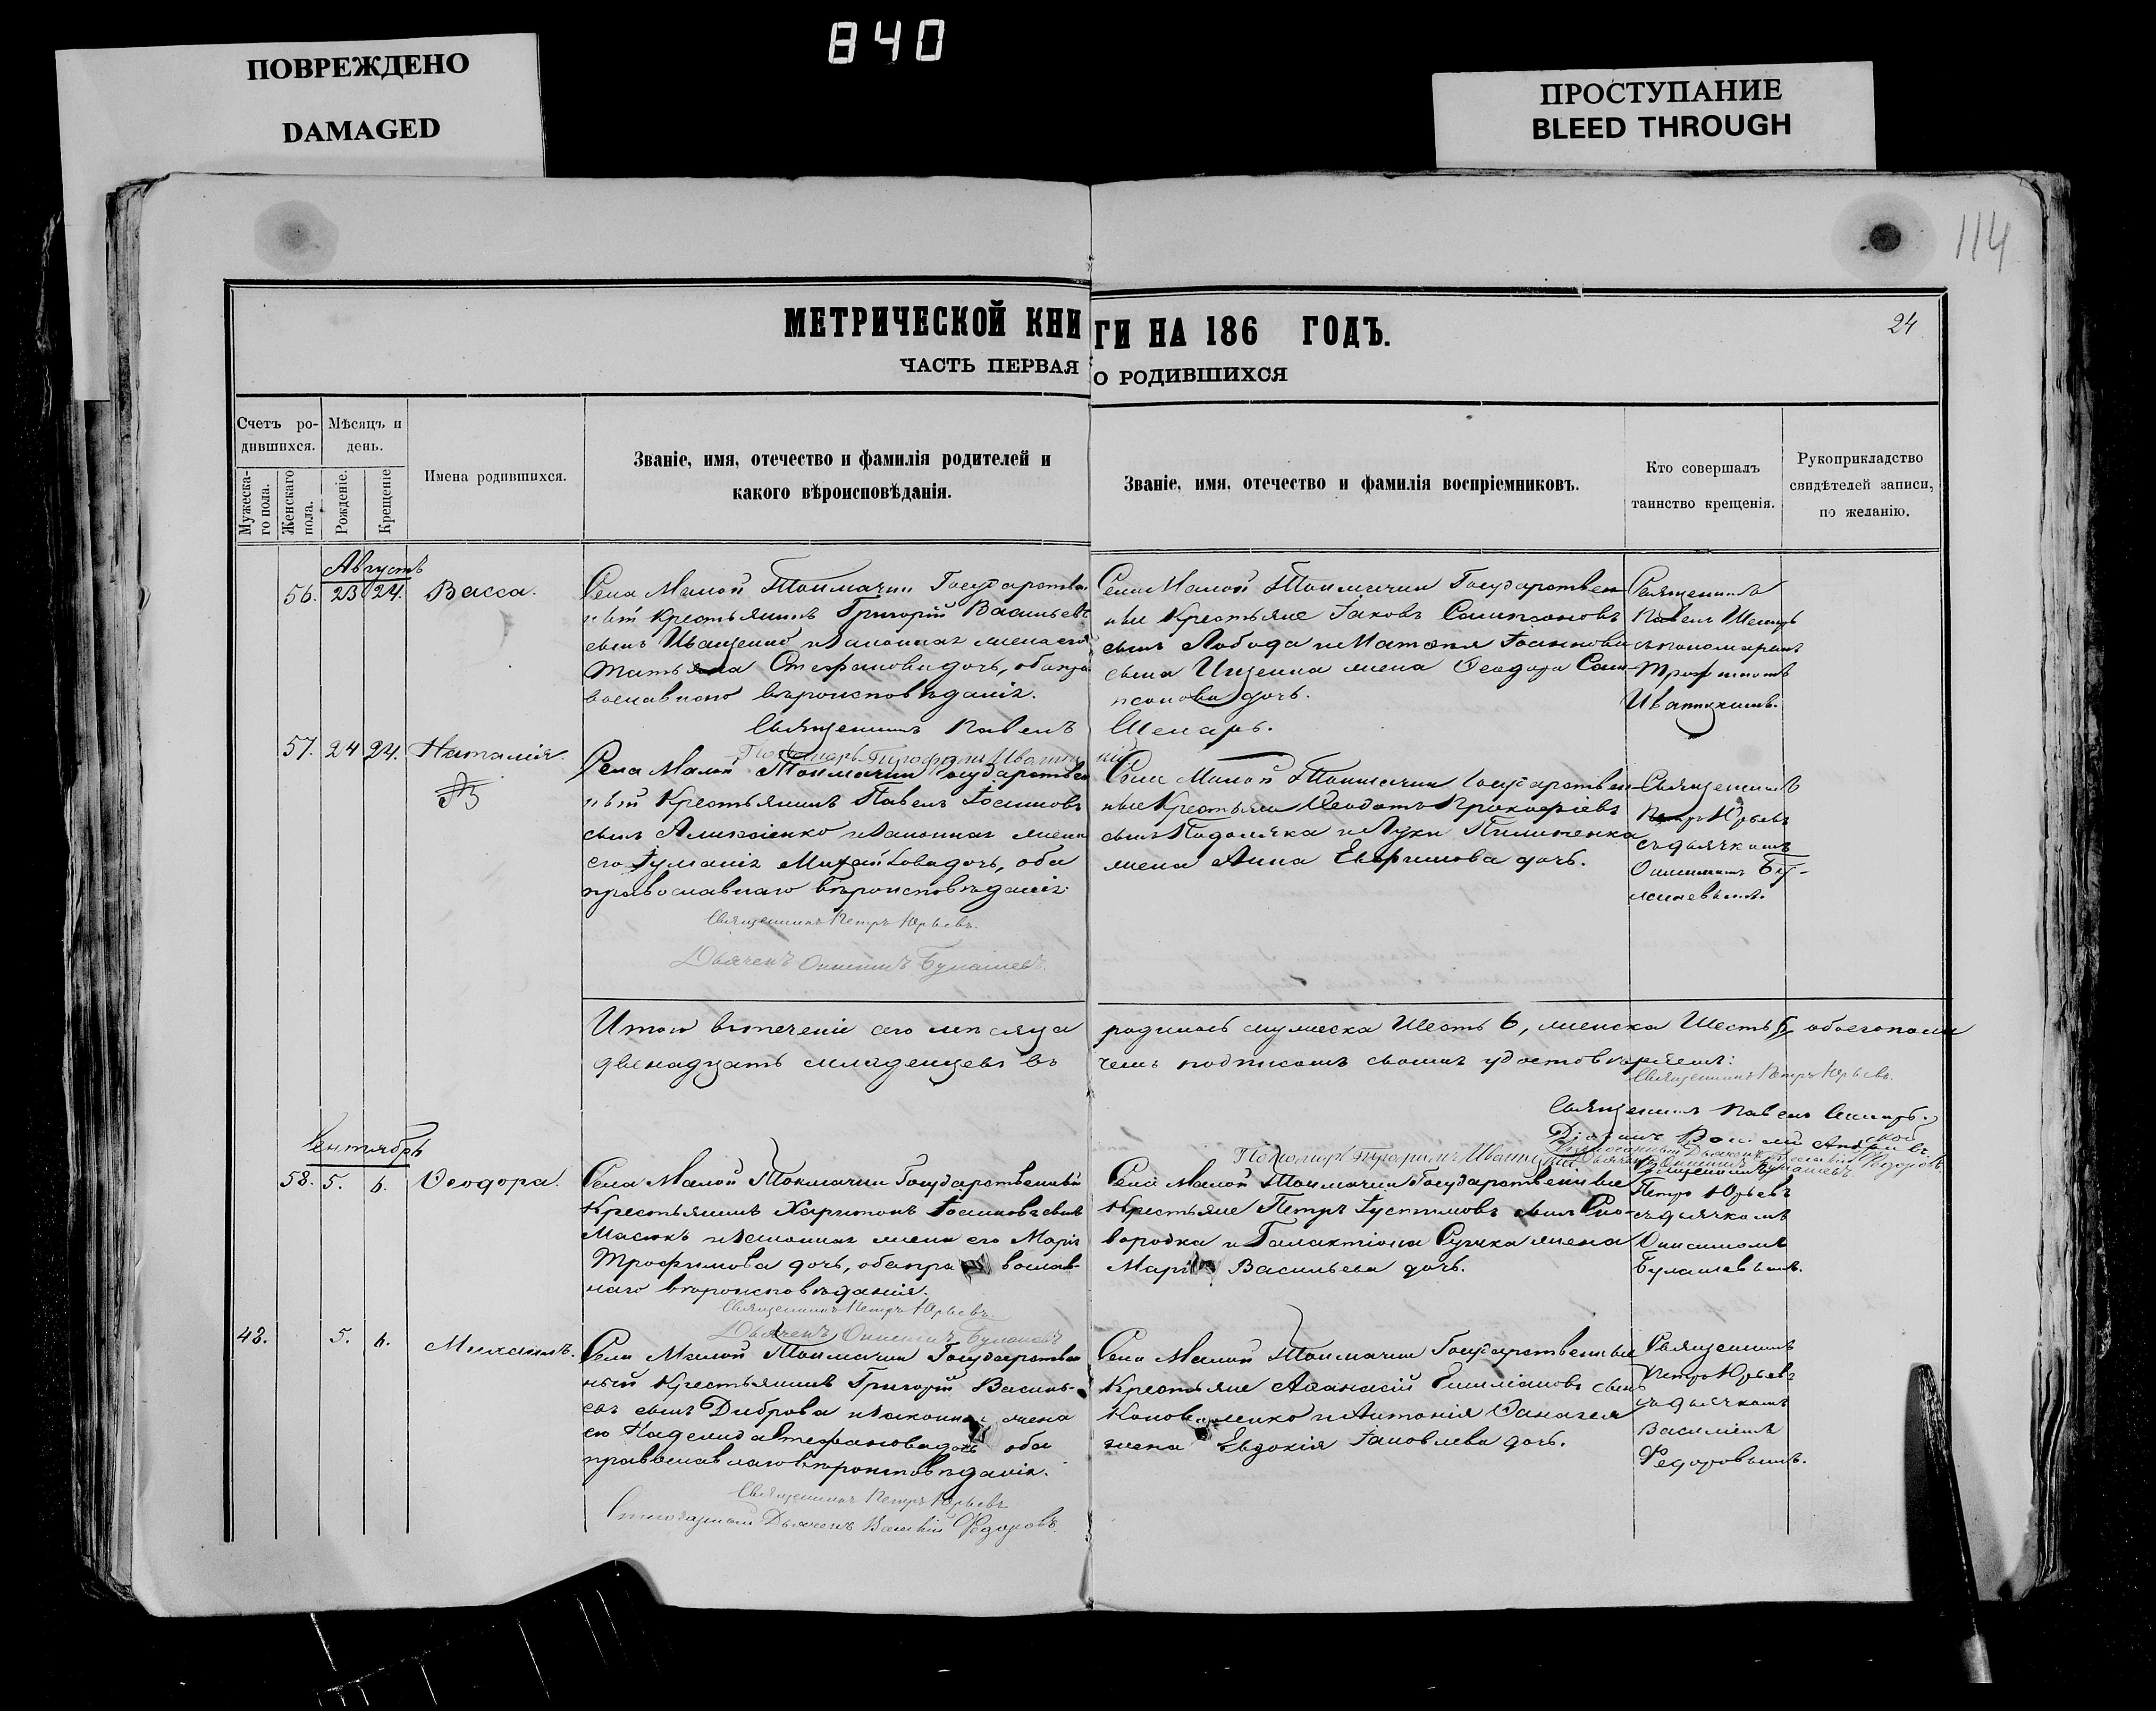 840
ПОВРЕЖДЕНО
DAMAGED
ПРОСТУПАНИЕ
BLEED THROUGH
114
24
МЕТРИЧЕСКОЙ КНИГИ НА 186 ГОДЪ.
ЧАСТЬ ПЕРВАЯ О РОДИВШИХСЯ
Счетъ ро-
дившихся.
Мужеска-
го пола.
Женскаго
пола.
Мѣсяцъ и
день.
Рожденіе.
Крещеніе
Имена родившихся.
Званіе, имя, отечество и фамилія родителей и
какого вѣроисповѣданія.
Званіе, имя, отечество и фамилія воспріемниковъ.
Кто совершалъ
таинство крещенія.
Рукоприкладство
свидѣтелей записи,
по желанію.
Августъ
56. 23 24. Васса.
Села Малой Токмачки Государствен
ный крестьянинъ Григорій Васильевъ
сынъ Иващенко и законная жена его
Татьяна Стефанова дочь, оба пра
вославнаго вѣроисповѣданія.
Села Малой Токмачки Государствен
ные Крестьяне Іаковъ Сампсоновъ
сынъ Лобода и Матвея Іоаннова
сына Ищенка жена Ѳеодора Сам-
псонова дочь.
Священникъ
Павелъ
съ пономаремъ
Трофимомъ
Иваницкимъ.
Священникъ Павелъ
Пономарь Трофимъ Иваницкій
57. 24 24. Наталія.
Села Малой Токмачки Государствен
ный Крестьянинъ Павелъ Іоанновъ
сынъ Алексіенко и законная жена
его Іуліанія Михайлова дочь, оба
православнаго вѣроисповѣданія.
Села Малой Токмачки Государствен-
ные Крестьяне Ѳеодотъ Прокофіевъ
сынъ Подоляка и Луки Пилипенка
жена Анна Евфимова дочь.
Священникъ
Петръ Юрьевъ
съ дьячкомъ
Онисимомъ Бу-
лашевымъ.
Священникъ Петръ Юрьевъ.
Дьячекъ Онисимъ Булашевъ.
Итого въ теченіи сего мѣсяца родилось мужеска Шесть 6, женска Шесть 6, обоего пола
двенадцать младенцевъ въ чемъ подписомъ своимъ удостовѣряемъ:
Священникъ Петръ Юрьевъ.
Священникъ Павелъ
Пономарь Трофимъ Иваницкій.
Сентябрь
58. 5. 6. Ѳеодора.
Села Малой Токмачки Государственный
Крестьянинъ Харитонъ Іоанновъ сынъ
Масюкъ и законная жена его Марія
Трофимова дочь, оба пра вослав-
наго вѣроисповѣданія.
Села Малой Токмачки Государственные
Крестьяне Петръ Іустиновъ сынъ Ско-
вородка и Галактіона Сучка жена
Марія Васильева дочь.
Священникъ
Петръ Юрьевъ
съ дьячкомъ
Онисимомъ
Булашевымъ.
Священникъ Петръ Юрьевъ.
Дьячекъ Онисимъ Булашевъ
48. 5. 6. Михаилъ.
Села Малой Токмачки Государствен
ный Крестьянинъ Григорій Василь-
евъ сынъ Диброва и законная жена
его оба
православнаго вѣроисповѣданія.
Села Малой Токмачки Государственные
Крестьяне Аѳанасій Емиліановъ сынъ
Коноваленко и Антонія
жена Евдокія Іаковлева дочь.
Священникъ
Петръ Юрьевъ
съ дьячкомъ
Василіемъ
Ѳедоровымъ.
Священникъ Петръ Юрьевъ
Дьячекъ Василій Ѳедоровъ.